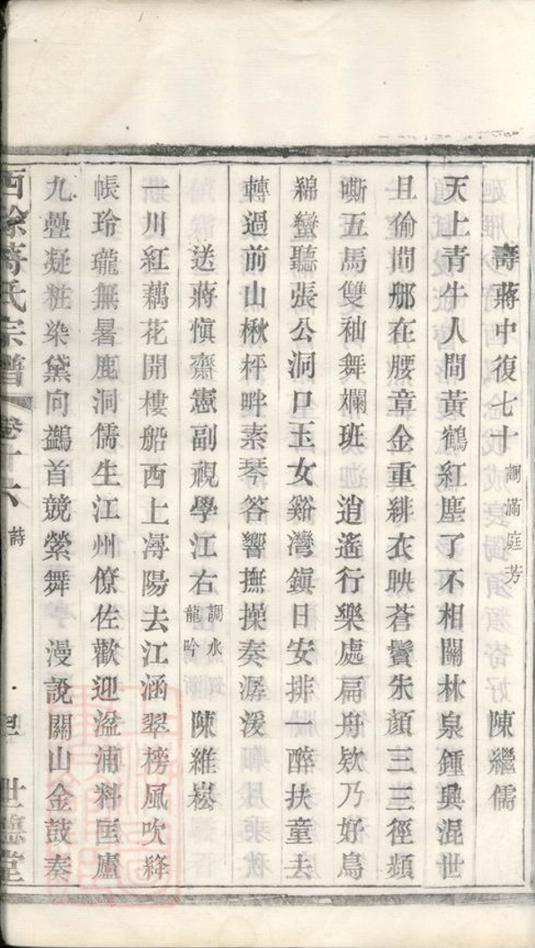 壽蔣中復七十 調滿庭芳 陳繼儒
天上青牛人間黃鶴紅塵了不相關林泉鍾興混世
且偷閒那在腰章金重緋衣映蒼鬢朱顏三三徑頻
嘶五馬雙袖舞斕班 逍遙行樂處扁舟欸乃好鳥
綿蠻聽張公洞口玉女谿灣鎮日安排一醉扶童去
轉過前山楸枰畔素琴答響撫操奏潺湲
送蔣愼齋憲副視學江右 調水龍吟 陳維崧
一川紅藕花開樓船西上潯陽去江涵翠榜風吹絳
帳玲瓏無暑鹿洞儒生江州僚佐歡迎湓浦料匡廬
九疊凝粧染黛向鷁首競縈舞 漫說關山金鼓奏
西餘蔣氏宗譜 卷十六 詩 世德堂